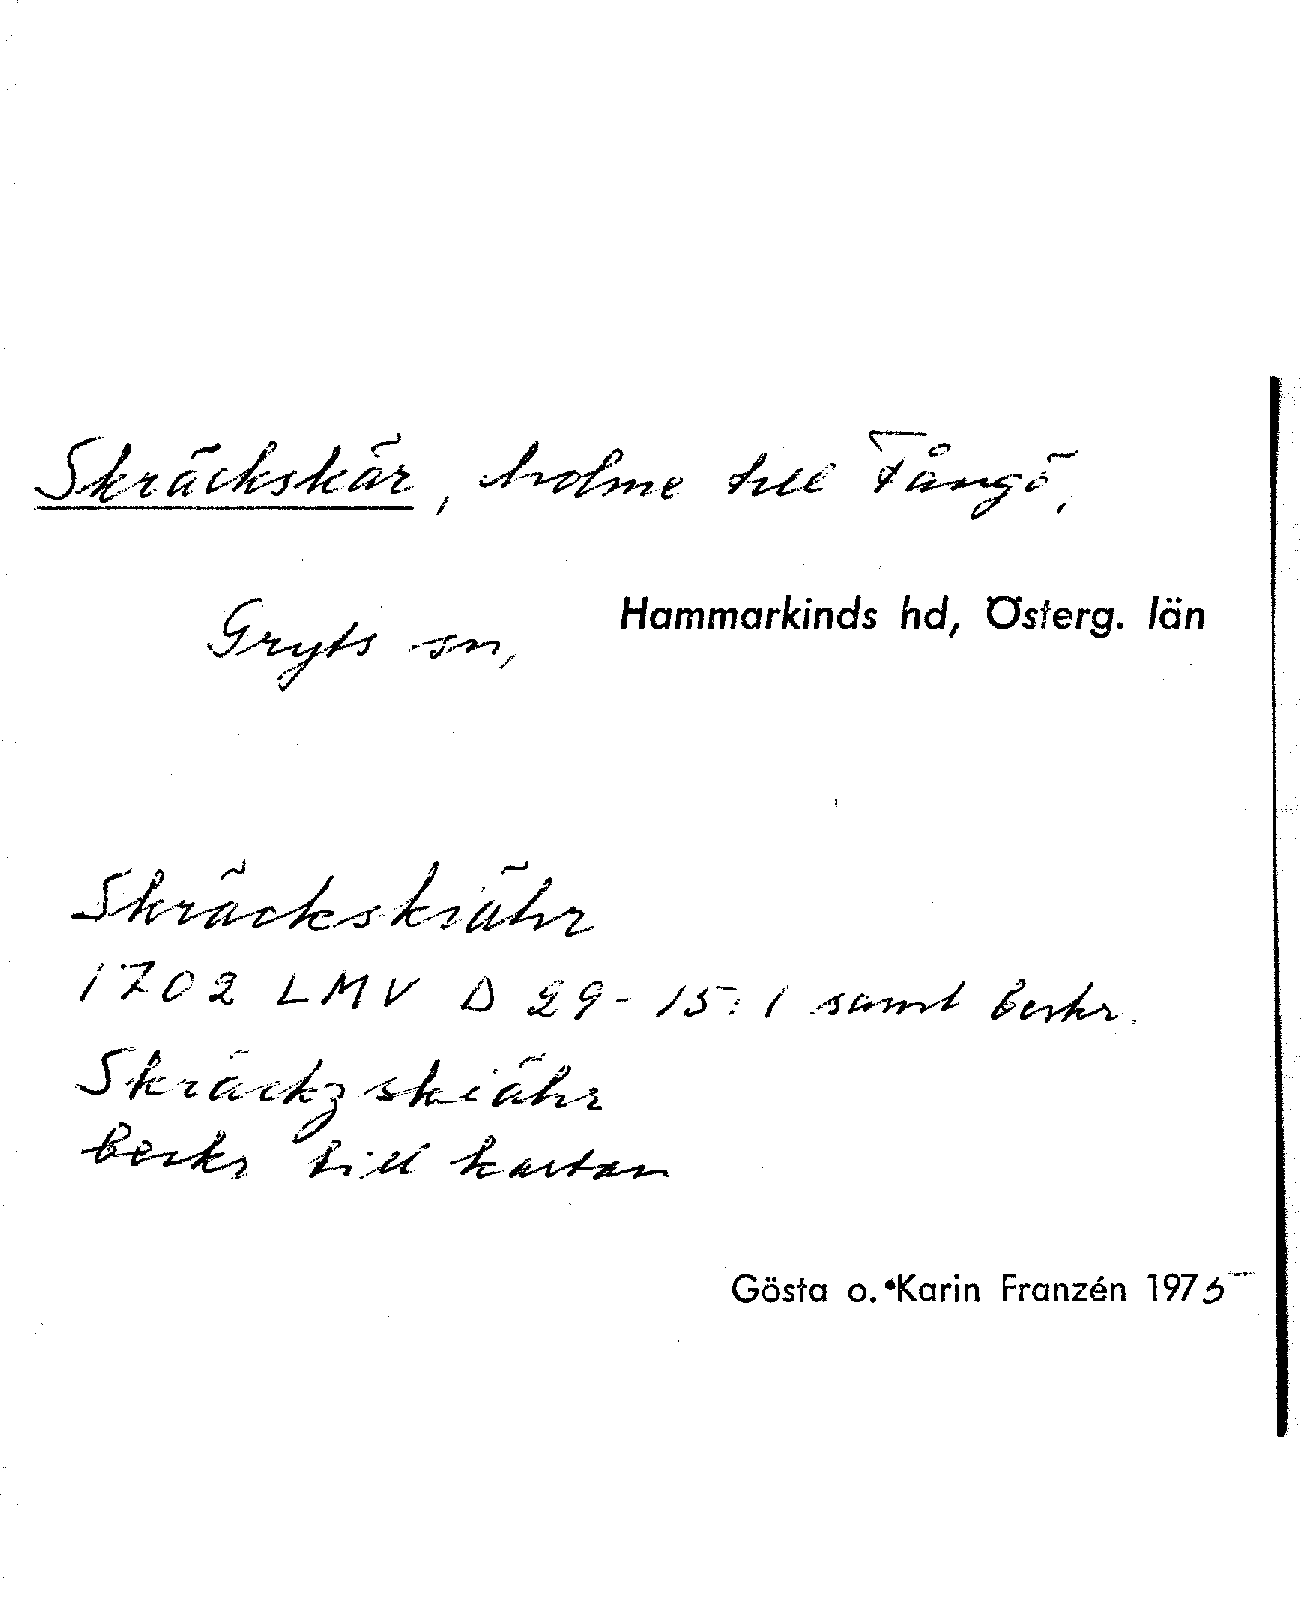 Skräckskär, holme till Fångö,
Gryts sn, Hammarkinds hd, Österg. län
Skräckskiähr
1702 LMV D 29-15:1 samt beskr.
Skräckzskiähr
beskr till kartan
Gösta o. Karin Franzén 1975